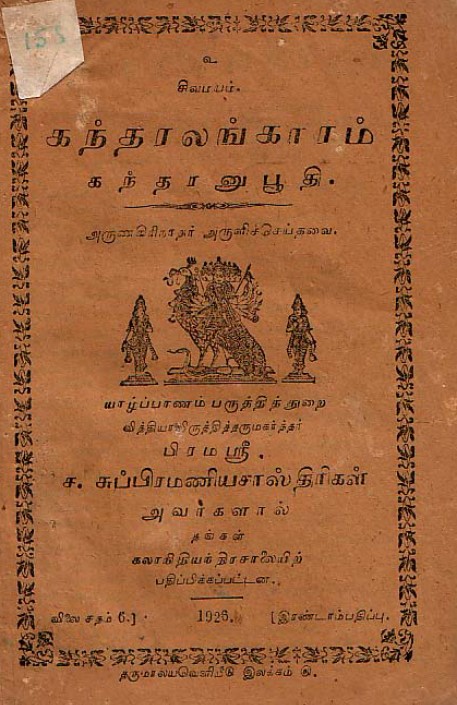 155
உ
சிவமயம்.
கந்தரலங்காரம்
கந்தரனுபூதி.
அருணகிரிநாதர் அருளிச்செய்தவை.
யாழ்ப்பாணம் பருத்தித்துறை
வித்தியாவிருத்தித்தருமகர்த்தர்
பிரமஸ்ரீ
ச. சுப்பிரமணியசாஸ்திரிகள்
அவர்களால்
தங்கள்
கலாநிதியந்திரசாலையிற்
பதிப்பிக்கப்பட்டன.
விலை சதம் 6.] 1926. [இரண்டாம்பதிப்பு.
தருமாலயவெளியீடு இலக்கம்